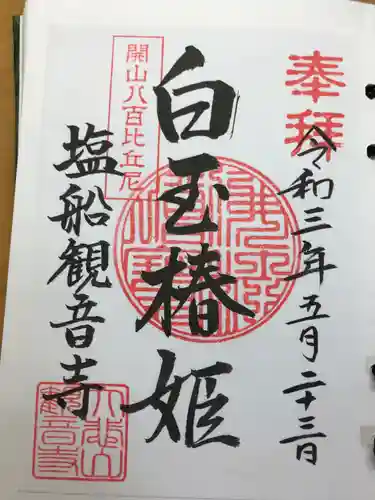 奉拝
令和三年五月二十三日
白玉椿姫
開山八百比丘尼
塩船観音寺